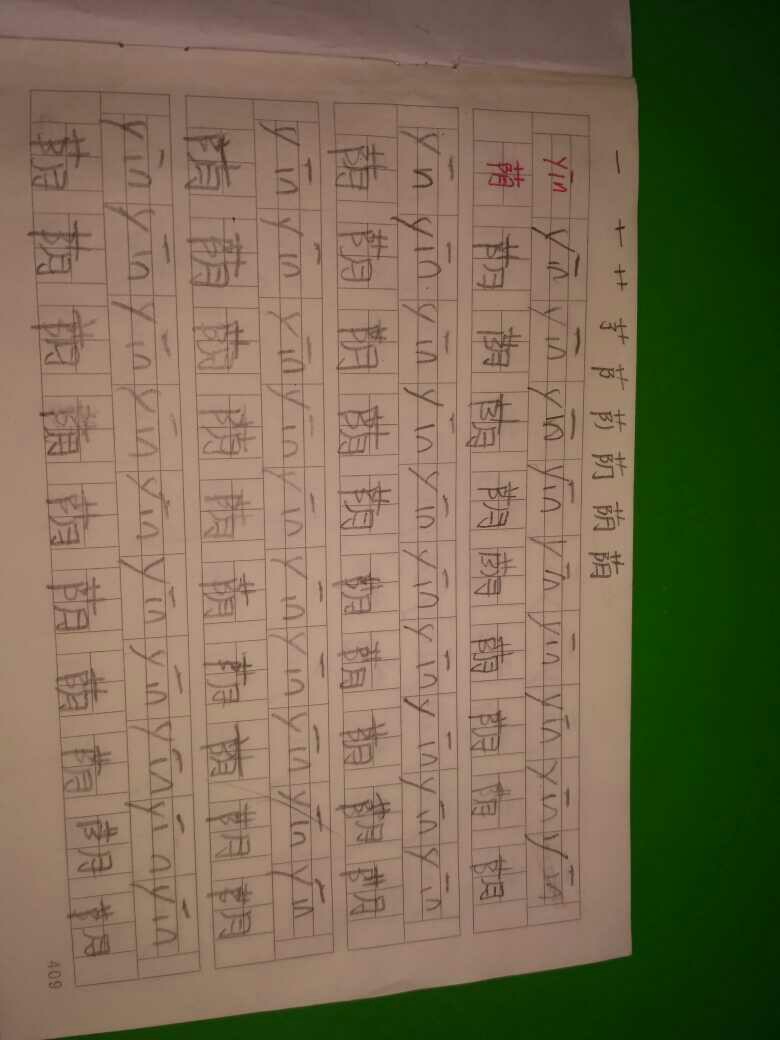 一 十 艹 荫
yīn yīn yīn yīn yīn yīn yīn yīn yīn yīn
荫 荫 荫 荫 荫 荫 荫 荫 荫 荫
yīn yīn yīn yīn yīn yīn yīn yīn yīn yīn
荫 荫 荫 荫 荫 荫 荫 荫 荫 荫
yīn yīn yīn yīn yīn yīn yīn yīn yīn yīn
荫 荫 荫 荫 荫 荫 荫 荫 荫 荫
yīn yīn yīn yīn yīn yīn yīn yīn yīn yīn
荫 荫 荫 荫 荫 荫 荫 荫 荫 荫
409